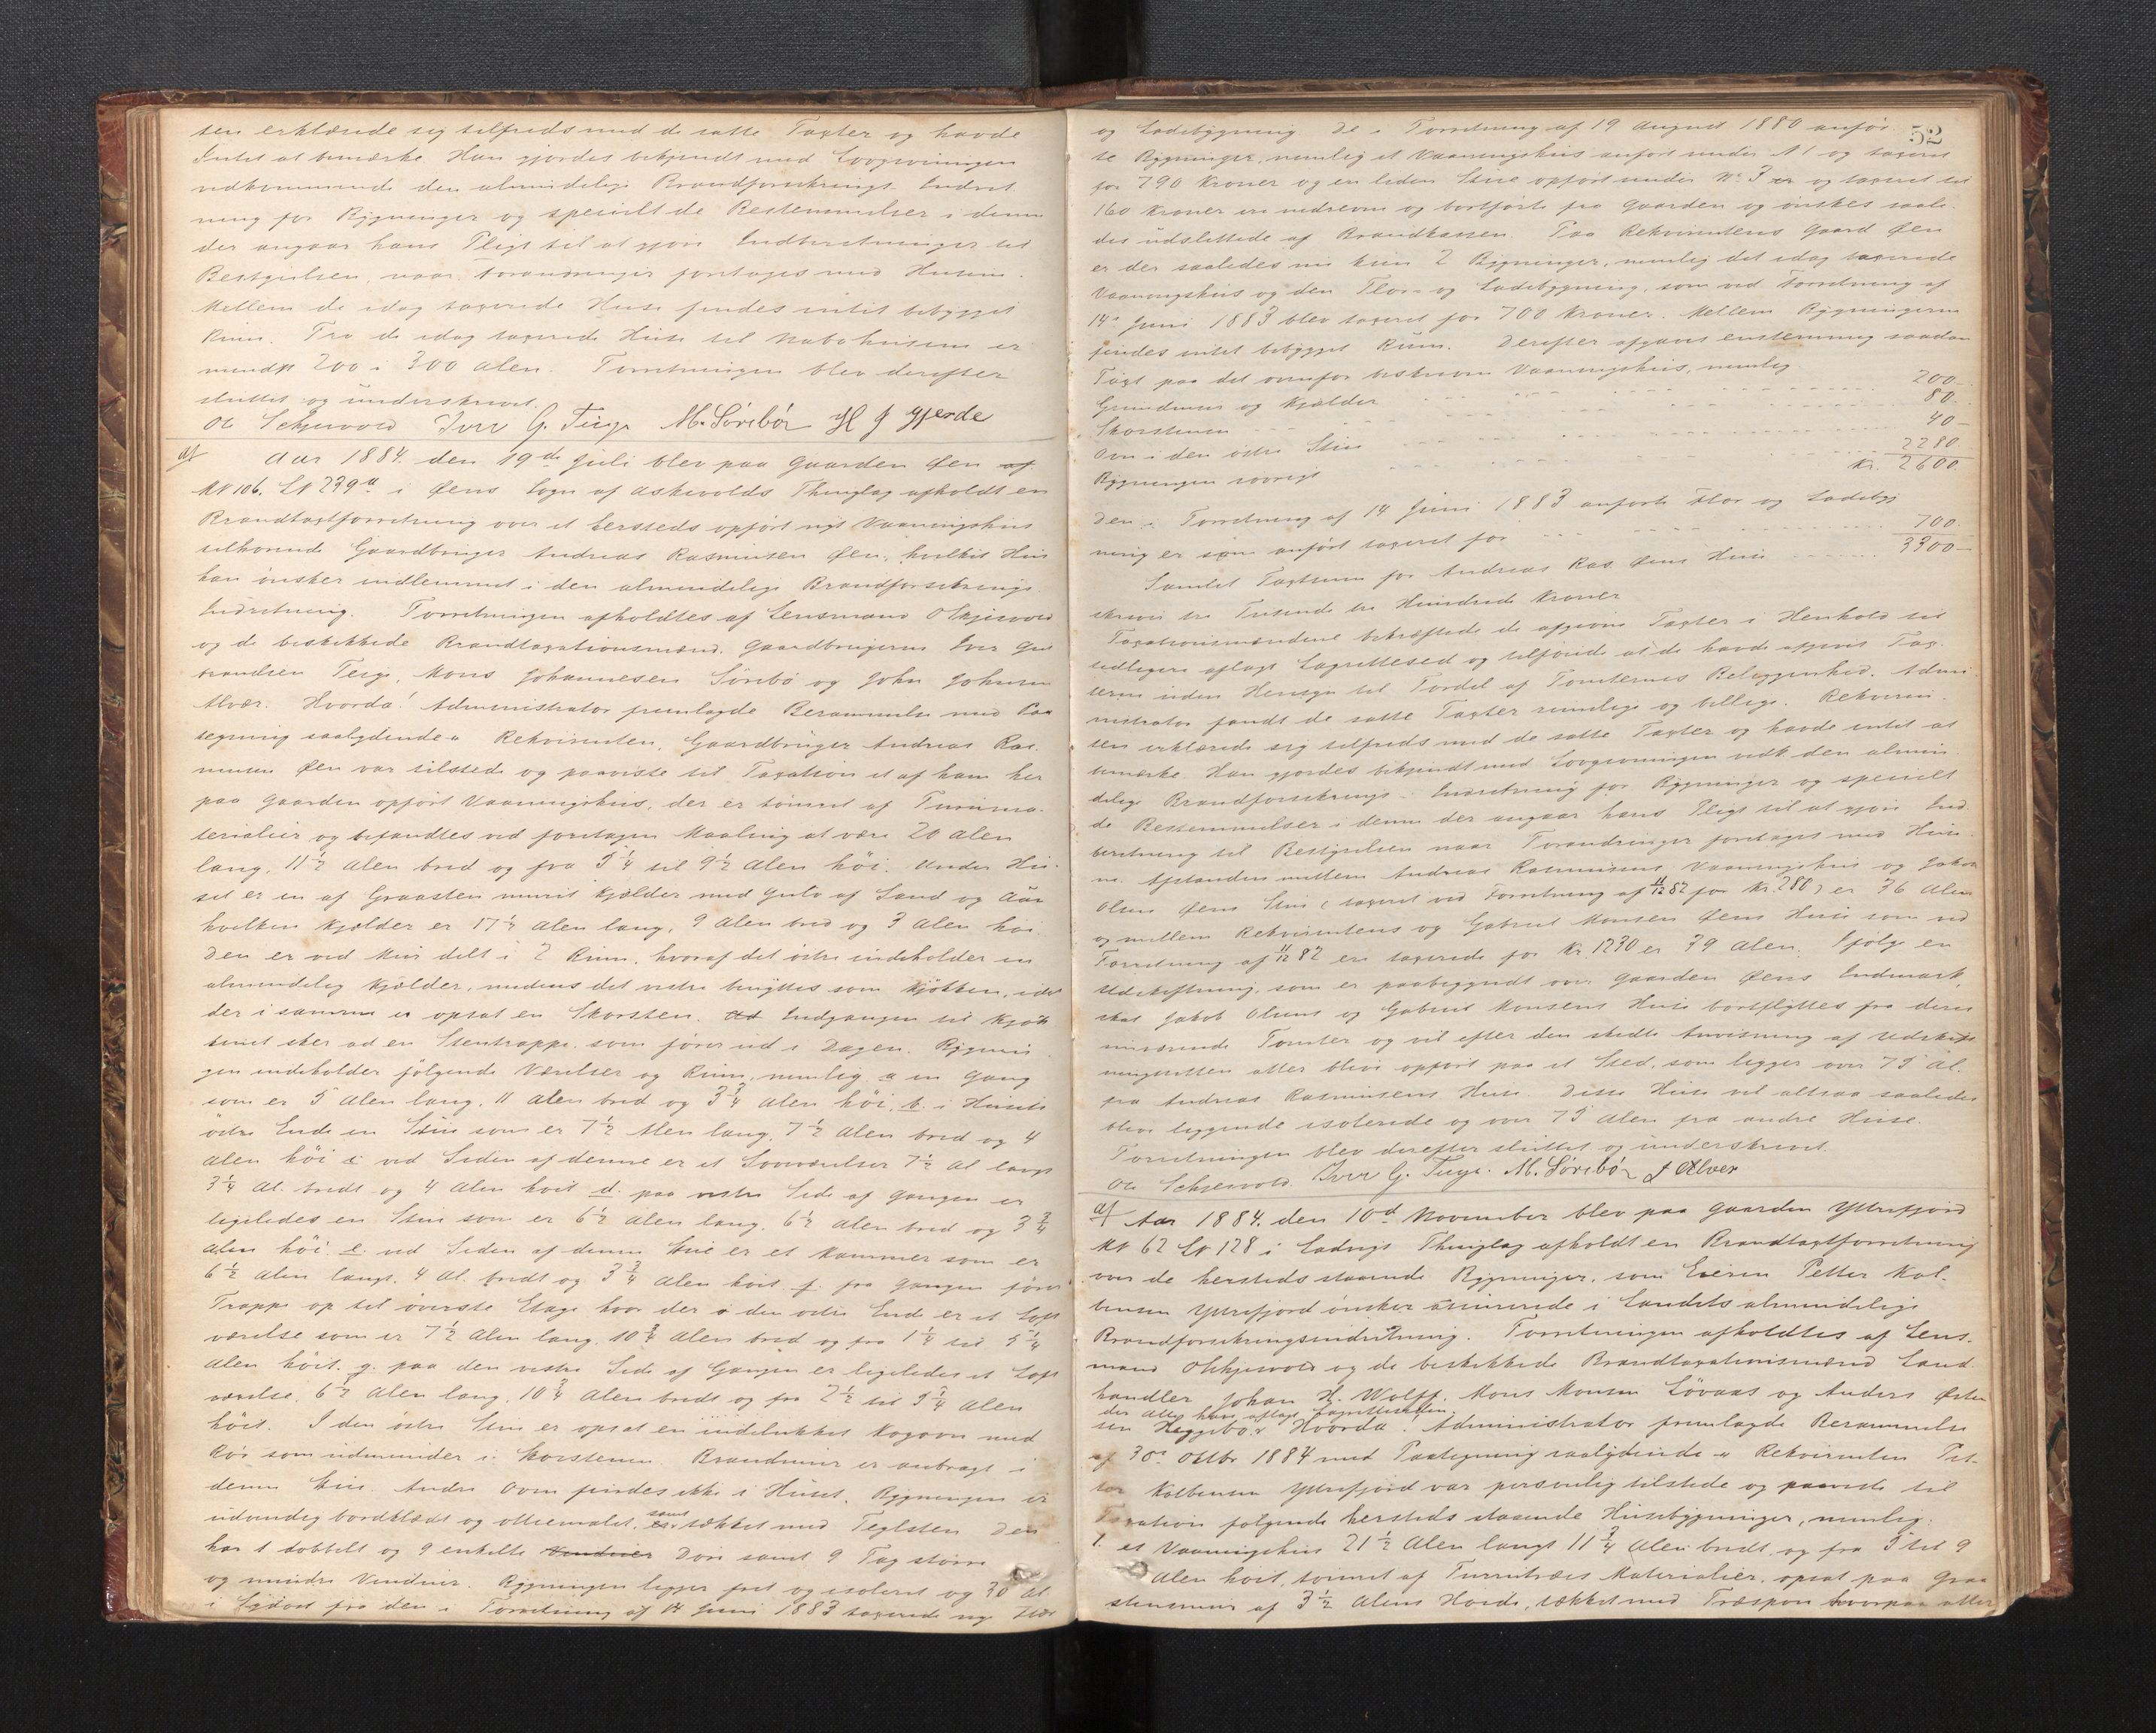 sen erklærede sig tilfreds med de satte Taxter og havde
Intet at bemærke. Han gjordes bekjendt med Lovgivningen
vedkommende den almindelige Brandforsikrings Indret
ning for Bygninger og specielt de Bestemmelser i denne
der angaar hans Pligt til at gjøre Indberetninger til
Bestyrelsen, naar Forandringer foretages med Husene.
Mellem de idag taxerede Huse findes intet bebygget
Rum. Fra de idag taxerede Huse til Nabohusene er
mindst 200 a 300 Alen. Forretningen blev derefter
sluttet og underskrevet.
Ol Schjervold Iver G. Teige M. Sörebö H J Gjerde
Aar 1884 den 19de Juli blev paa Gaarden Øen af
MN 106. LN 239a i Øens Sogn af Askvolds Thinglag afholdt en
Brandtaxtforretning over et hersteds opført nyt Vaaningshus
tilhørende Gaardbruger Andreas Rasmusen Øen, hvilket Hus
han ønsker indlemmet i den almindelige Brandforsikrings
Indretning. Forretningen afholdtes af Lensmand O Skjervold
og de beskikkede Brandtaxationsmænd, Gaardbrugerne Iver Gul
brandsen Teige, Mons Johannesen Sörebö og John Johnsen
Alvær. Hvorda! Administrator fremlagde Berammelse med Paa
tegning saalydende " Rekvirenten, Gaardbruger Andreas Ras
musen Øen var tilstede og paaviste til Taxation et af ham her
paa Gaarden opført Vaaningshus, der er tømret af Furuma
terialier og befandtes ved foretagen Maaling at være 20 Alen
lang, 11 1/2 Alen bred og fra 5 1/4 til 9 1/2 Alen höi. Under Hu
set er en af Graasten muret Kjælder med Gulv af Sand og Aur
hvilken Kjælder er 17 1/2 Alen lang, 9 Alen bred og 3 Alen höi
Den er ved Mur delt i 2 Rum, hvoraf det östre indeholder en
almindelig Kjælder, medens det vestre benyttes som Kjökken, idet
der i samme er opsat en Skorsten. Ad Indgangen til Kjök
kenet sker ad en Stentrappe som fører ud i Dagen. Bygnin
gen indeholder følgende Værelser og Rum, nemlig a en Gang
som er 5 Alen lang, 11 Alen bred og 3 3/4 Alen höi, b. i Husets
östre Ende en Stue som er 7 1/2 Alen lang, 7 1/2 Alen bred og 4
Alen höi c ved Siden af denne er et Soveværelse 7 1/2 Al langt
3 1/4 Al. bredt og 4 Alen höit d. paa vestre Side af Gangen er
ligeledes en Stue som er 6 1/2 Alen lang, 6 1/2 Alen bred og 3 3/4
Alen höi e. ved Siden af denne Stue er et Kammer som er
6 1/2 Alen langt, 4 Al. bredt og 3 3/4 Alen höit f. fra Gangen fører
Trappe op til øverste Etage hvor der i den östre End er et Loft
værelse som er 7 1/2 Alen lang, 10 3/4 Alen bred og fra 1 1/4 til 5 1/4
Alen höit. g. paa den vestre Side af Gangen er ligeledes et Loft
værelse, 6 1/2 Alen lang, 10 3/4 Alen bredt og fra 2 1/2 til 5 1/4 Alen
höit. I den östre Stue er opsat en indelukket Kogovn med
Rör som udmunder i Skorstenen. Brandmur er anbragt i
denne Stue. Andre Ovne findes ikke i Huset. Bygningen er
udvendig bordklædt og oliemalet, samt tækket med Teglsten Den
har 1 dobbelt og 9 enkelte Vinduer Døre samt 9 Fag større
og mindre Vinduer. Bygningen ligger frit og isoleret og 30 Al.
i Sydost fra den i Forretning af 14 Juni 1883 taxerede ny Flor
52
og Ladebygning. De i Forretning af 19 August 1880 anfør
te Bygninger, nemlig et Vaaningshus anført under N 1 og taxeret
for 790 Kroner og en liden Stue opført under No 3 er og taxeret til
160 Kroner ere nedrevne og bortførte fra Gaarden og ønskes saale
des udslettede af Brandkassen. Paa Rekvirentens Gaard Øen
er der saaledes nu kun 2 Bygninger, nemlig det idag taxerede
Vaaningshus og den Flor- og Ladebygning, som ved Forretning af
14de Juni 1883 blev taxeret for 700 Kroner. Mellem Bygningerne
findes intet bebygget Rum. Derefter afgaves enstemmig saadan
Taxt paa det ovenfor beskrevne Vaaningshus, nemlig
Grundmur og Kjælder 200
Skorstenen 80
Ovn i den östre Stue 40
Bygningen forövrigt 2280
Kr. 2600
Den i Forretning af 14 Juni 1883 anførte Flor og Ladebyg
ning er som anført taxeret for 700
Samlet Taxtsum for Andreas Ras Øens Huse 3300
skriver tre Tusende tre Hundrede Kroner
Taxationsmændene bekræftede de afgivne Taxter i Henhold til
tidligere aflagt Lagrettesed og tilføiede at de havde afgivet Tax
terne uden Hensyn til Fordel af Tomternes Beliggenhed. Admi
nistrator fandt de satte Taxter rimelige og billige. Rekviren
ten erklærede sig tilfreds med de satte Taxter og havde intet at
bemærke. Han gjordes bekjendt med Lovgivningen vedk den almin
delige Brandforsikrings Indretning for Bygninger og specielt
de Bestemmelser i denne der angaar hans Pligt til at gjøre Ind
beretning til Bestyrelsen naar Forandringer foretages med Huse
ne. Afstanden mellem Andreas Rasmusens Vaaningshus og Jakob
Olsens Øens Stue (taxeret ved Forretning af 11/12 82 for Kr. 280) er 36 Alen
og mellem Rekvirentens og Gabriel Monsen Øens Huse som ved
Forretning af 11/12 82 ere taxerede for Kr. 1230 er 39 Alen. Ifølge en
Udskiftning, som er paabegyndt over Gaarden Øens Indmark,
skal Jakob Olsens og Gabriel Monsens Huse bortflyttes fra deres
nuværende Tomter og vil efter den skedte Anvisning af Udskift
ningsretten atter blive opført paa et Sted, som ligger over 75 Al.
fra Andreas Rasmusens Huse. Disse Huse vil altsaa saaledes
blive liggende isolerede og over 75 Alen fra andre Huse.
Forretningen blev derefter sluttet og underskrevet.
Ol Schjervold. Iver G. Teige. M. Sörebö J Alver
Aar 1884 den 10de November blev paa Gaarden Yttrefjord
MN 62 LN 128 i Ladvigs Thinglag afholdt en Brandtaxtforretning
over de hersteds staaende Bygninger, som Eieren Petter Kol
bensen Yttrefjord ønsker assurerede i Landets almindelige
Brandforsikringsindretning. Forretningen afholdtes af Lens
mand O Skjervold og de beskikkede Brandtaxationsmænd Land
handler Johan H. Wolff, Mons Monsen Løvaas og Anders Østen
der alle have aflagt Lagretteseden.
sen Heggebö. Hvorda! Administrator fremlagde Berammelse
af 30te Oktbr 1884 med Paategning saalydende " Rekvirenten Pet
ter Kolbensen Yttrefjord var personlig tilstede og paaviste til
Taxation følgende hersteds staaende Husebygninger, nemlig:
1. et Vaaningshus 21 1/2 Alen langt 11 3/4 Alen bredt og fra 5 til 9
Alen høit, tømret af Furutræes Materialier, opsat paa Graa
stensmur af 3 1/2 Alens Høide, tækket med Træspon hvorpaa atter